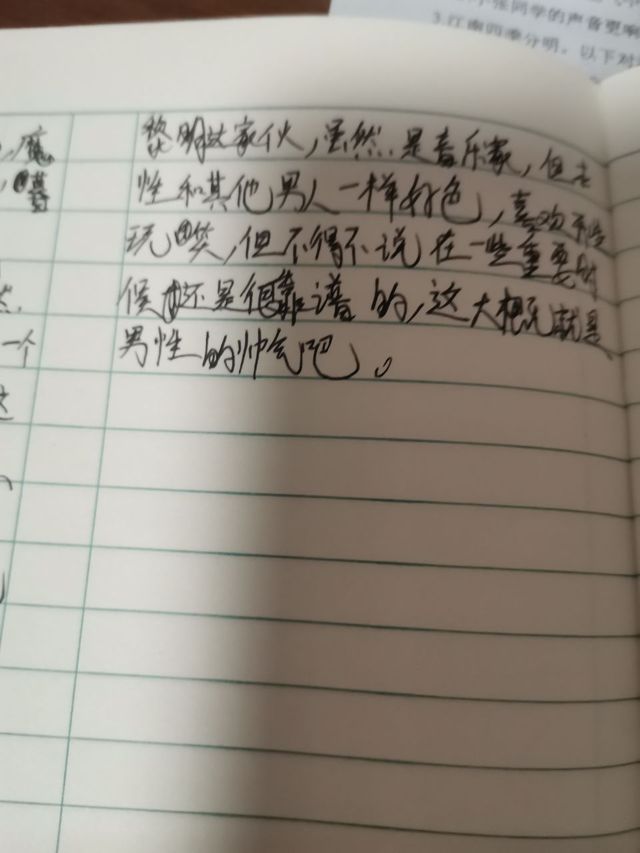 张同学的声音更响
3.江南四季分明。以下对
黎明这家伙，虽然是音乐家，但
性和其他男人一样好色，喜欢
玩笑，但不得不说在一些重要时
候还是很靠谱的，这大概就是
男性的帅气吧。
一个
这